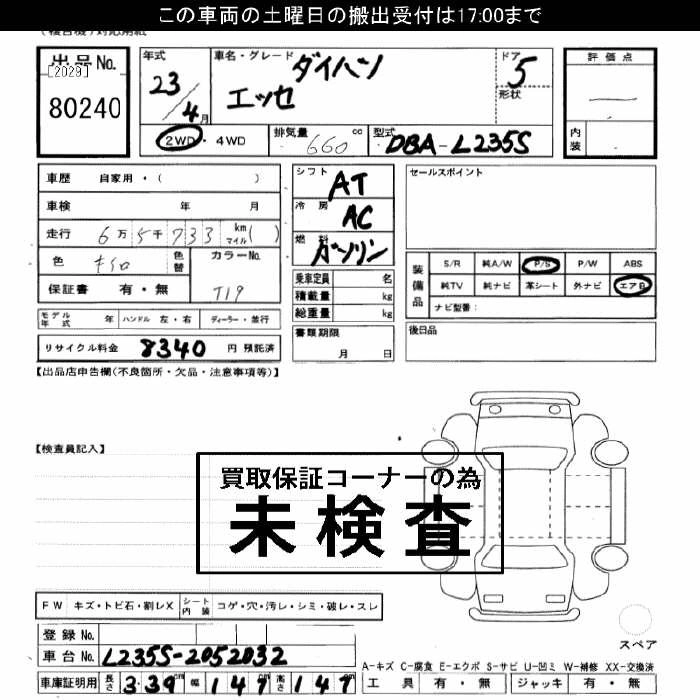 この車両の土曜日の搬出受付は17:00まで
出品No.
[2029]
80240
年式
23/4月
車名・グレード
ダイハツ
エッセ
ドア
5
形状
評価点
内装
2WD・4WD
排気量 660 cc
型式 DBA-L235S
車歴 自家用・( )
車検 年 月
走行 6万5千733 km マイル( )
色 色替 カラーNo.
T19
保証書 有・無
シフト AT
冷房 AC
燃料 ガソリン
乗車定員 名
積載量 kg
総重量 kg
書類期限
月 日
セールスポイント
装備品
S/R 純A/W P/S P/W ABS
純TV 純ナビ 革シート 外ナビ エアB
ナビ型番:
後日品
モデル年式 年 ハンドル 左・右 ディーラー・並行
リサイクル料金 8340 円 預託済
【出品店申告欄(不良箇所・欠品・注意事項等)】
【検査員記入】
買取保証コーナーの為
未検査
FW キズ・トビ石・割レX シート内装 コゲ・穴・汚レ・シミ・破レ・スレ
登録No.
車台No. L235S-2052032
車庫証明用 長さ 3.39 cm 幅 147 cm 高さ 147
スペア
A-キズ C-腐食 E-エクボ S-サビ U-凹ミ W-補修 XX-交換済
工具 有・無 ジャッキ 有・無